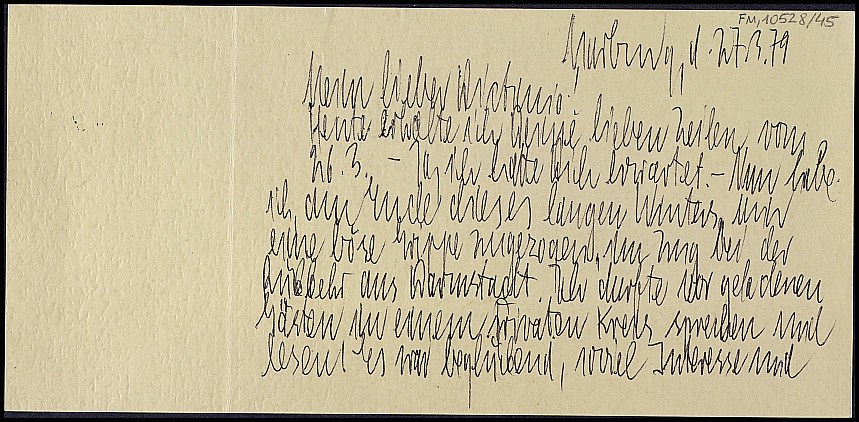 FM, 10528/45
Marburg, d. 27.3.79
Mein lieber
Heute erhalte ich Deine lieben Zeilen vom
26. 3. – Ja, ich hatte Dich erwartet. – Nun habe
ich, am Ende dieses langen Winters, mir
eine böse Grippe zugezogen, im Zug bei der
Rückkehr aus Darmstadt. Ich durfte vor geladenen
Gästen in einem privaten Kreis sprechen und
lesen! Es war beglückend, soviel Interesse und